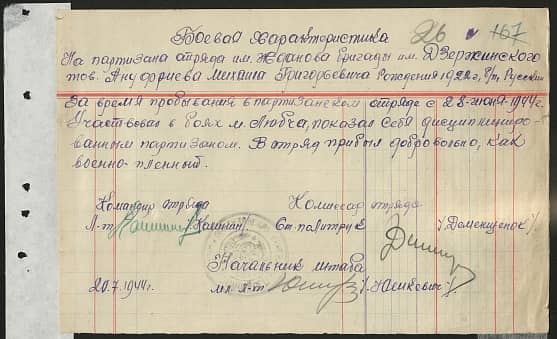 Боевая характеристика 26 167
На партизана отряда им. Жданова бригады им. Дзержинского
тов. Ануфриева Михаила Григорьевича Рождения 1922 г. б/п, Русский
За время пробывания в партизанском отряде с 28-июня-1944г.
Участвовал в боях м. Любча, показал себя дисциплиниро-
ванным партизаном. В отряд прибыл добровольно, как
военно-пленный.
Командир отряда Комиссар отряда
Л-т /Калинин/ Ст. политрук /Доменищенок/.
Начальник штаба
20.7.1944г. мл. л-т /Юшкевич/.